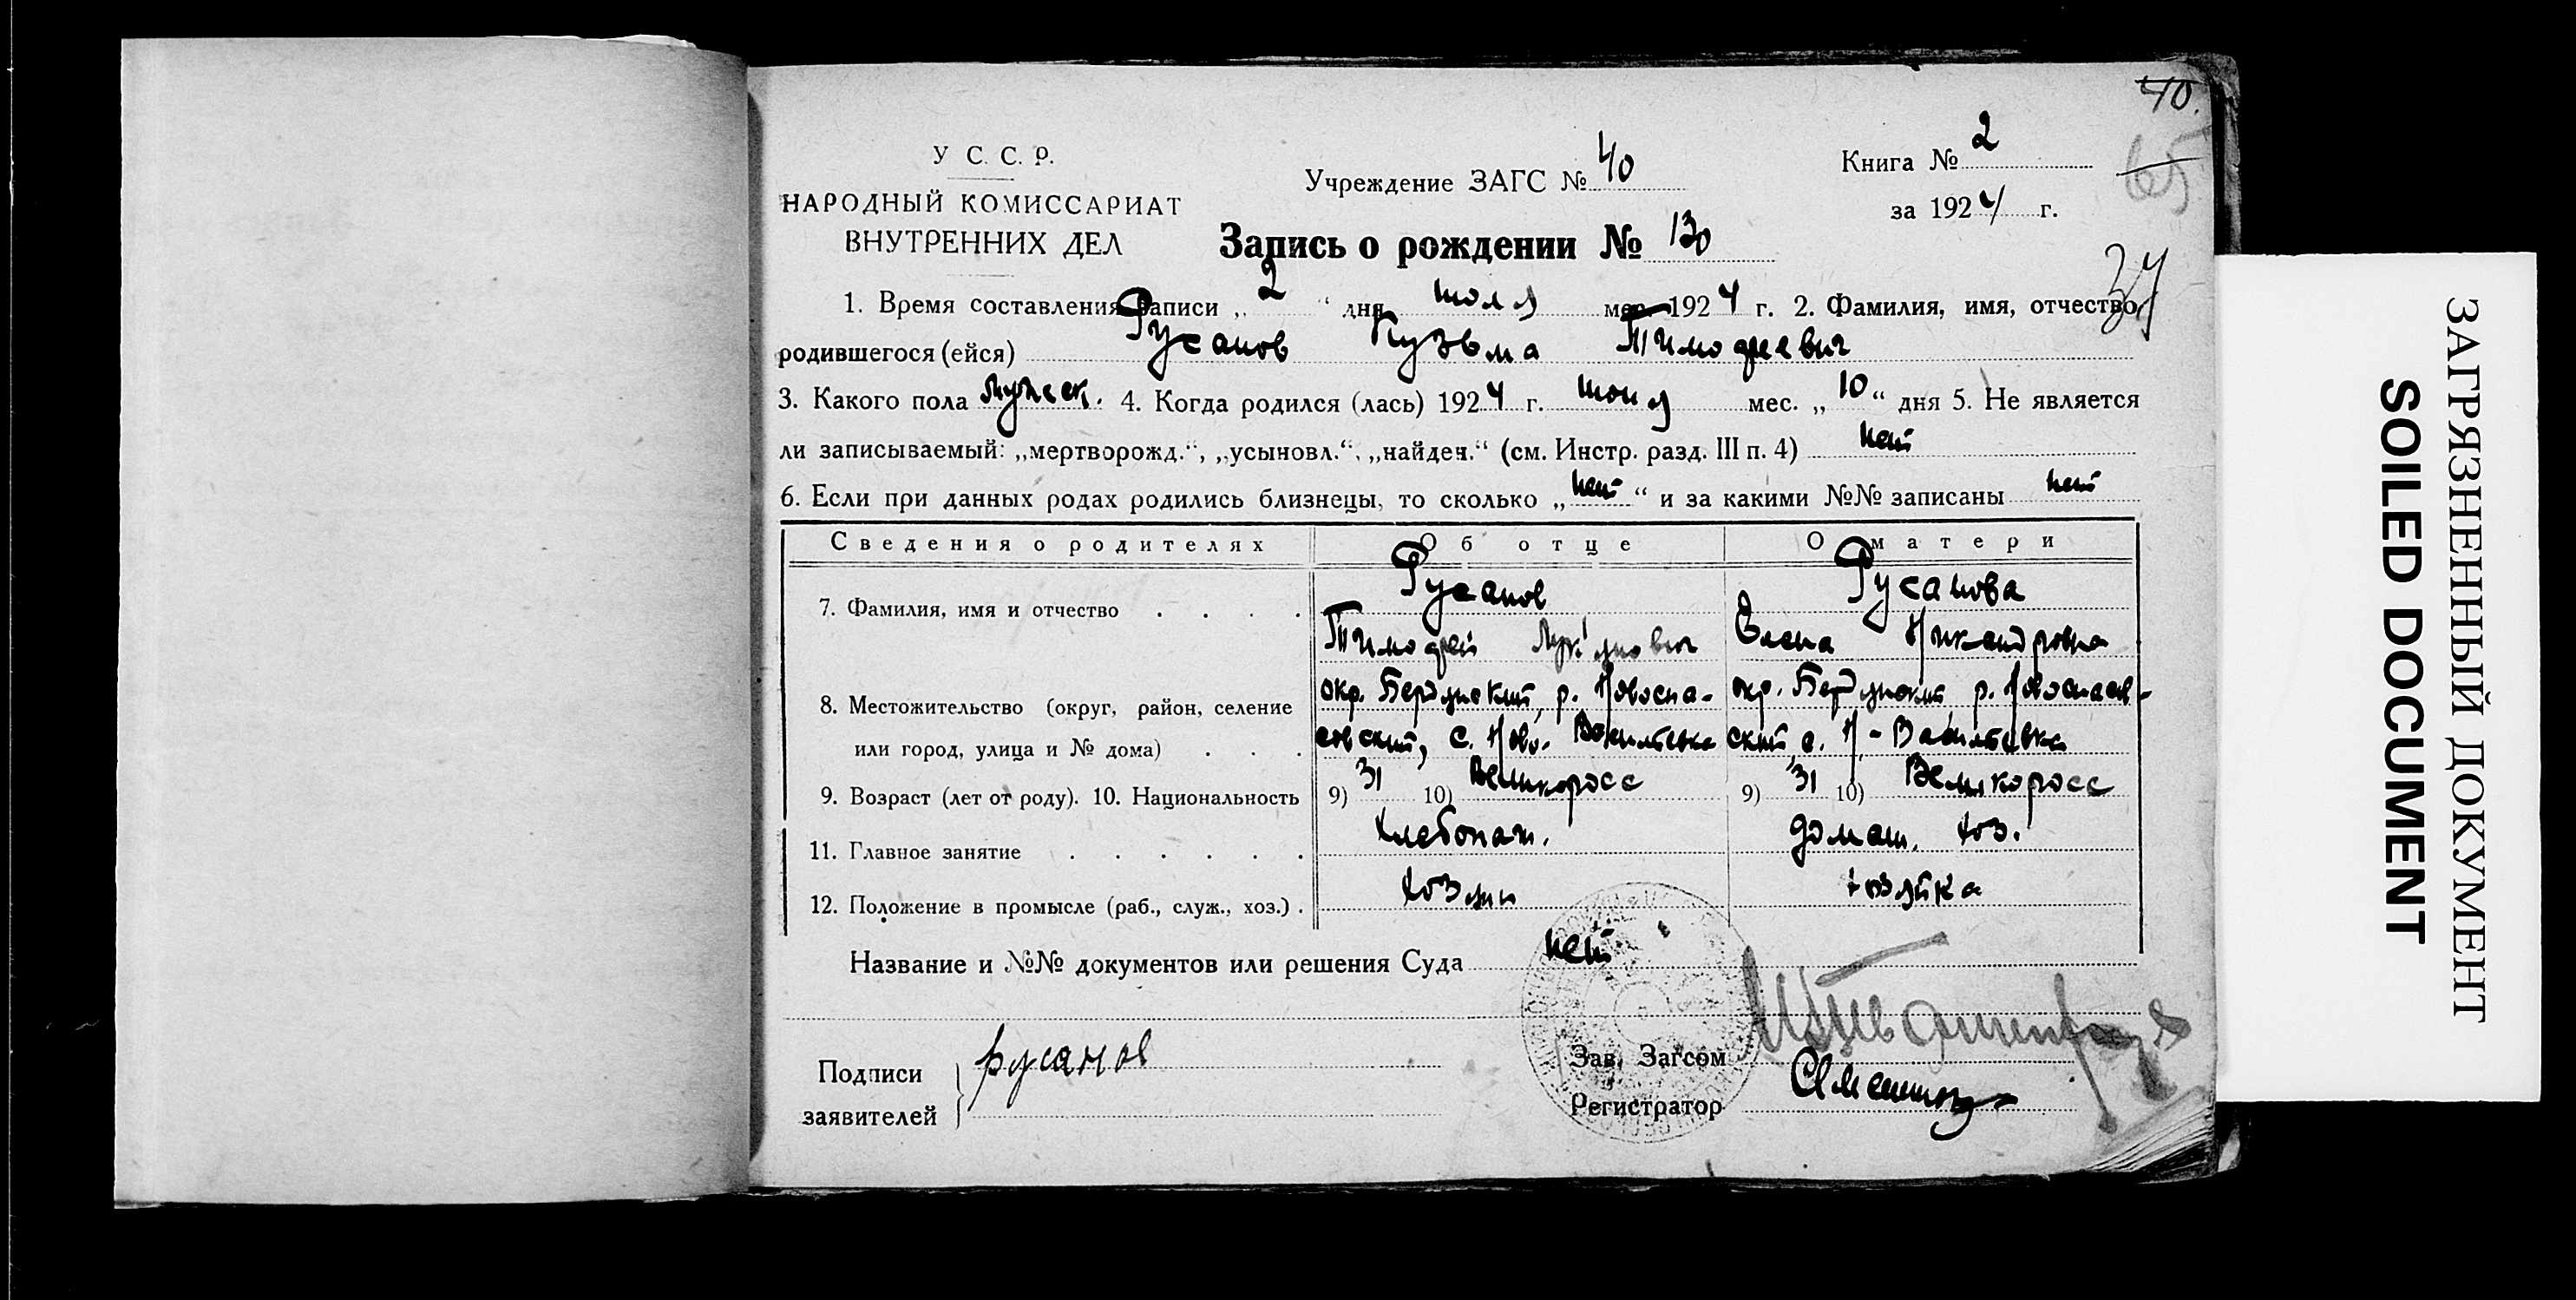 40.
65
34
У. С. С. Р.
НАРОДНЫЙ КОМИССАРИАТ
ВНУТРЕННИХ ДЕЛ
Учреждение ЗАГС № 40
Книга № 2
за 1924 г.
Запись о рождении № 130
1. Время составления записи „ 2 “ дня июля мес. 1924 г. 2. Фамилия, имя, отчество
родившегося (ейся) Русанов Кузьма Тимофеевич
3. Какого пола мужск. 4. Когда родился (лась) 1924 г. июня мес. „ 10 “ дня 5. Не является
ли записываемый: „мертворожд.“, „усыновл.“, „найден.“ (см. Инстр. разд. III п. 4) нет
6. Если при данных родах родились близнецы, то сколько „ нет “ и за какими №№ записаны нет
Сведения о родителях Об отце О матери
7. Фамилия, имя и отчество . . . . Русанов Русанова
Тимофей Лукьянович Елена Никандровна
8. Местожительство (округ, район, селение окр. Бердянский, р. Новоспа- окр. Бердянский р. Новоспасов-
или город, улица и № дома) . . . совский, с. Ново-Васильевка ский с. Н-Васильевка
9. Возраст (лет от роду). 10. Национальность 9) 31 10) Великоросс 9) 31 10) Великоросс
11. Главное занятие . . . . . . Хлебопаш. домаш. хоз.
12. Положение в промысле (раб., служ., хоз.) . хозяин хозяйка
Название и №№ документов или решения Суда нет
Подписи
заявителей
Русанов
Зав. Загсом
Регистратор
ЗАГРЯЗНЕННЫЙ ДОКУМЕНТ
SOILED DOCUMENT